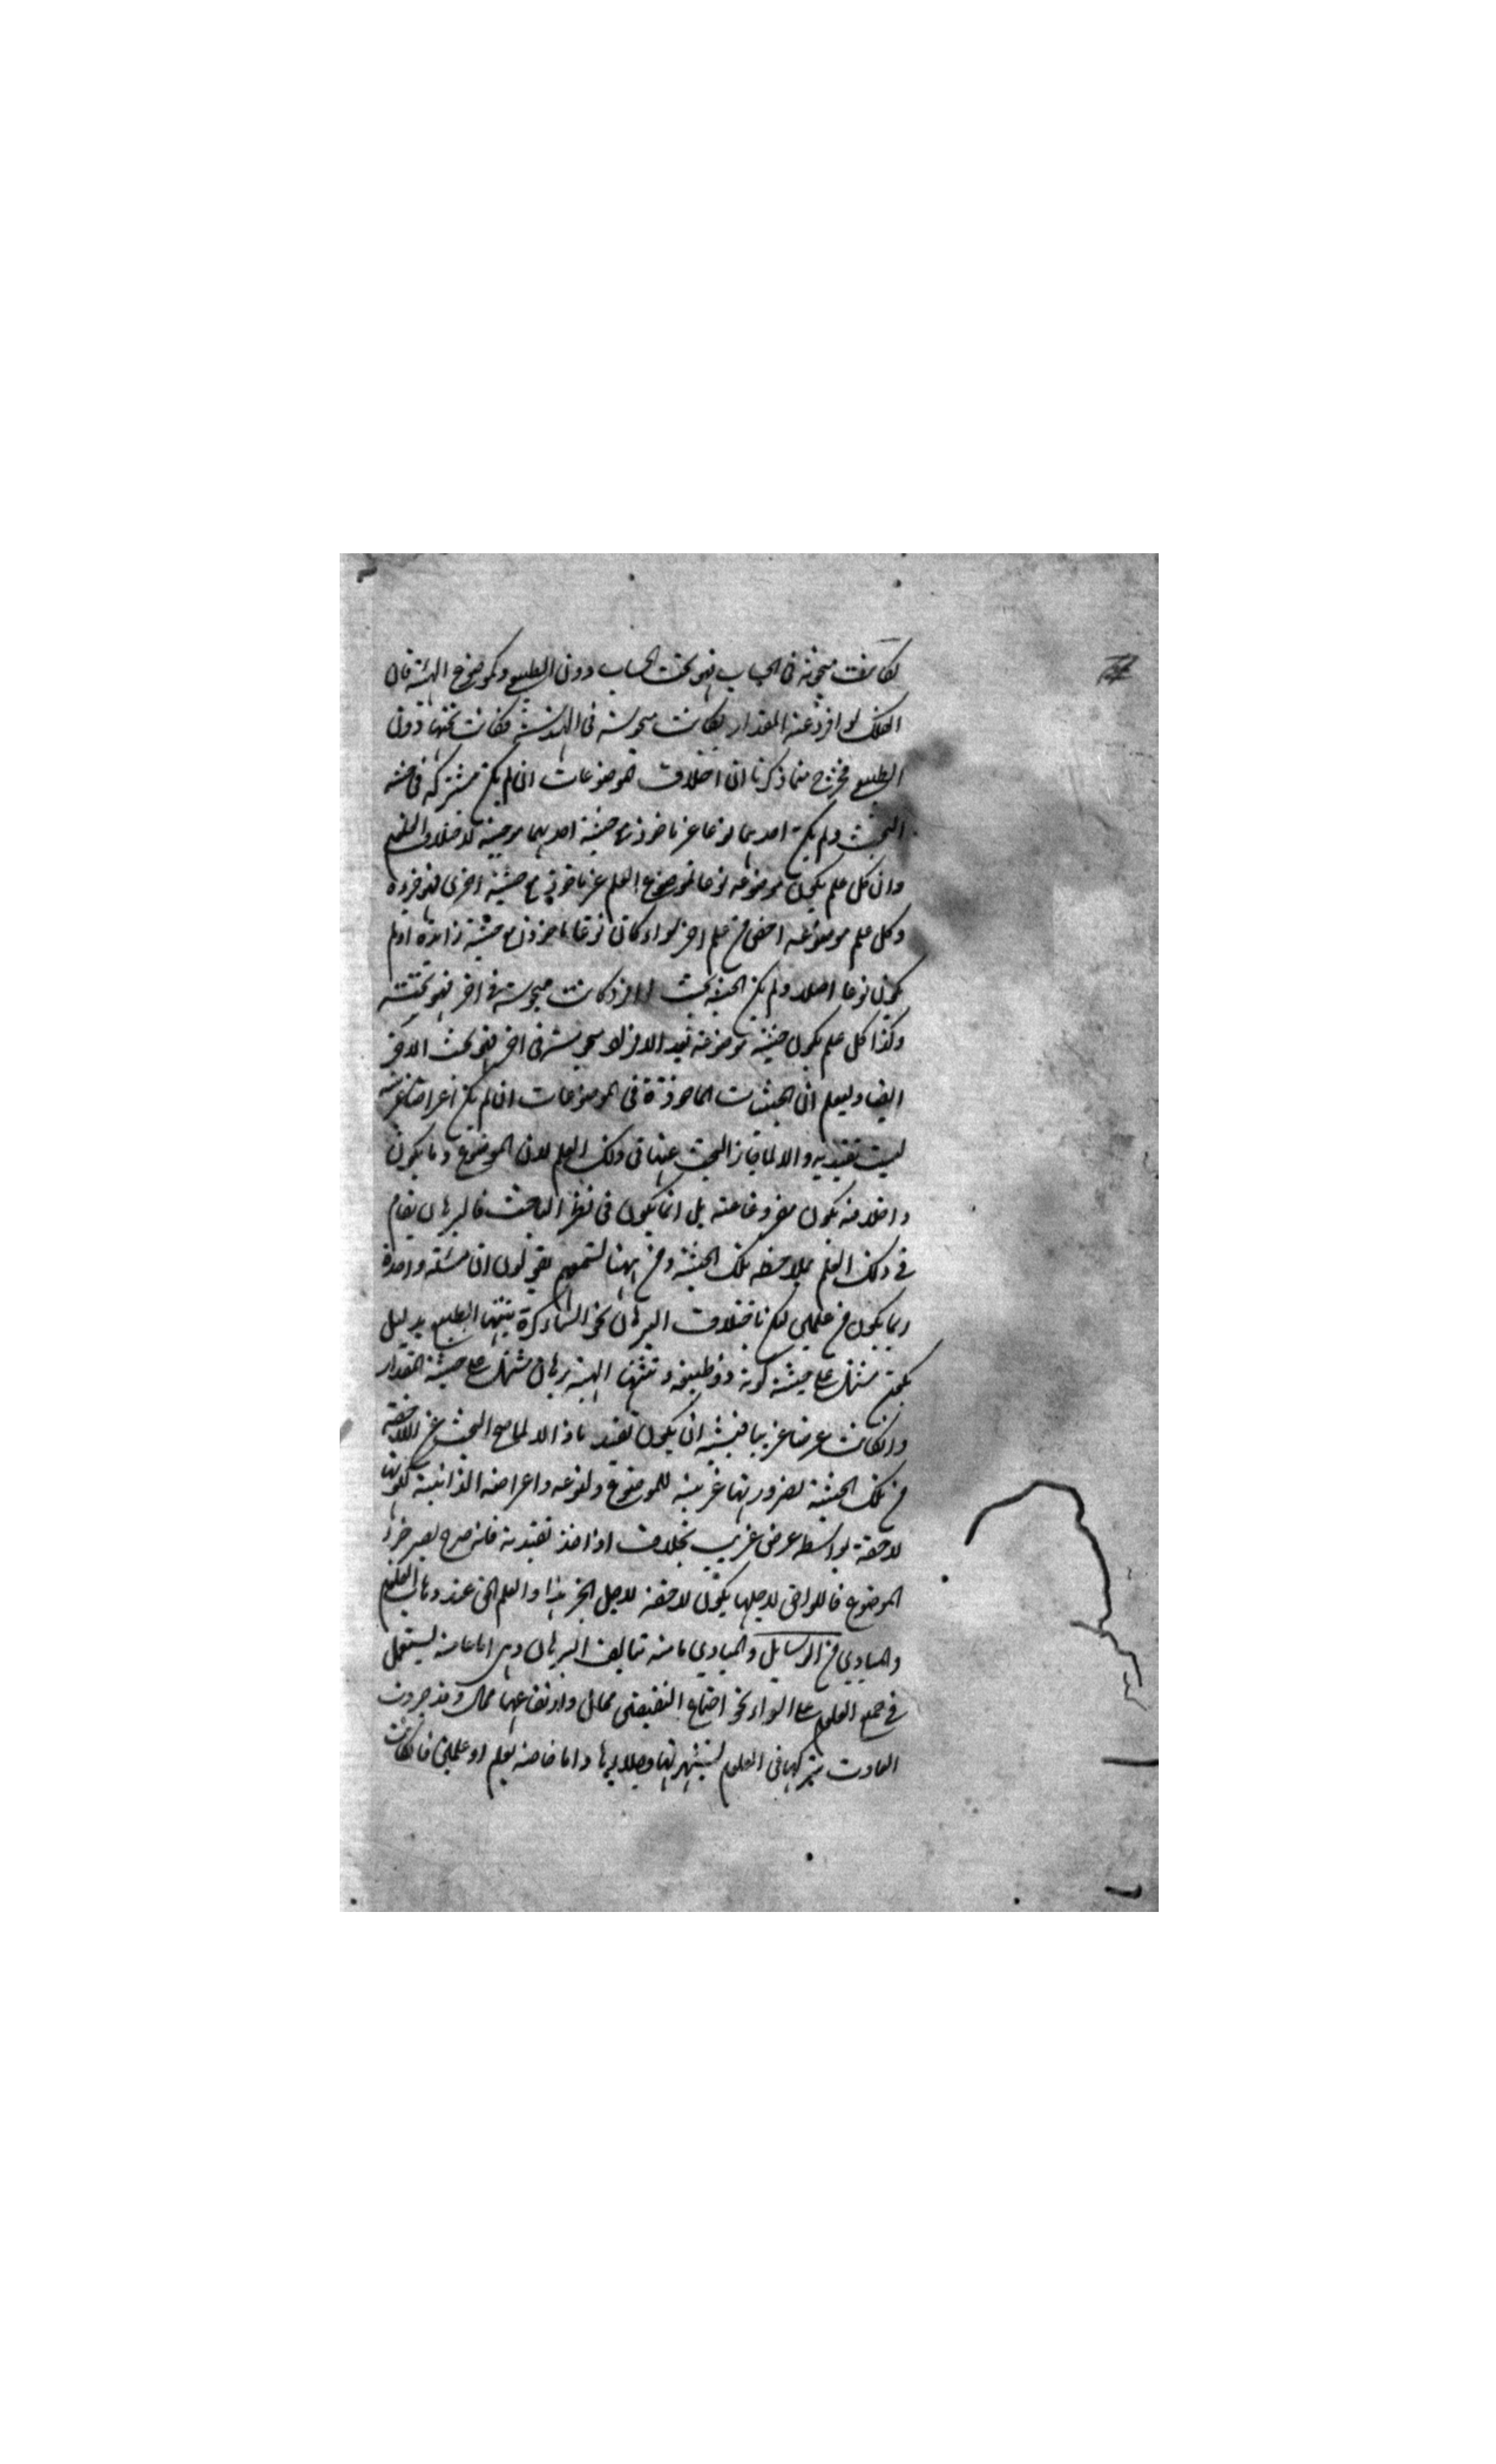 لكانت مبحوثة في الحساب فهو تحت الحساب دون الطبيعي وكموضوع الهيئة فان
الفلك لو افرد عنه المقدار لكانت مبحوثة في الهندسة فكانت تحتها دون
الطبيعي فخرج مما ذكرنا ان اختلاف الموضوعات ان لم يكن مشتركة في حيثية
البحث ولم يكن احديهما نوعا غير ماخوذ مع حيثية احديهما موجبة لاختلاف العلم
وان كل علم يكون موضوعه نوعا لموضوع العلم غير ماخوذ مع حيثية اخرى فهو جزؤه
وكل علم موضوعه اخص من علم اخر سواء كان نوعا ماخوذ مع حيثية زايدة او لم
يكون نوعا اصلا ولم يكن الحيثية بحيث لو افرد كانت مبحوثة في اخر فهو تحته
وكذا كل علم يكون حيثية موضوعه بعد الافراد مبحوثة في اخر فهو تحت الاخر
ايضا وليعلم ان الحيثيات الماخوذة في الموضوعات ان لم يكن اعراضا غريبة
ليست تقييدية والا لما جاز البحث عنها في ذلك العلم لان الموضوع وما يكون
داخلا فيه يكون مفروغا عنه بل انما يكون في نظر الباحث فالبرهان يقام
في ذلك العلم بملاحظة تلك الحيثية ومن ههنا تسمعهم يقولون ان مسئلة واحدة
ربما يكون من علمين لكن باختلاف البرهان نحو السماء كرة يبينها الطبيعي بدليل
يكون مشتمل على حيثية كونه ذو طبيعة وتثبتها الهيئة ببرهان مشتمل على حيثية المقدار
وان كانت عرضا غريبا فيشبه ان يكون تقييديا اذ الا لما صح البحث عن اللاحقة
من تلك الحيثية لضرورتها غريبة للموضوع ولنوعه واعراضه الذاتية لكونها
لاحقة بواسطة عرض غريب بخلاف اذا اخذ تقييدية فانه صح يصير جزء
الموضوع فاللواحق لاجلها يكون لاحقة لاجل الجزء هذا والعلم الحق عند وهاب العلم
والمبادي من المسايل والمبادي ما منه تتالف البرهان وهي اما عامة يستعمل
في جميع العلوم على السواء نحو اجتماع النقيضين محال وارتفاعهما محال وقد جرت
العادت بتركها في العلوم لشهرتها واما خاصة بعلم او علمين فان كانت